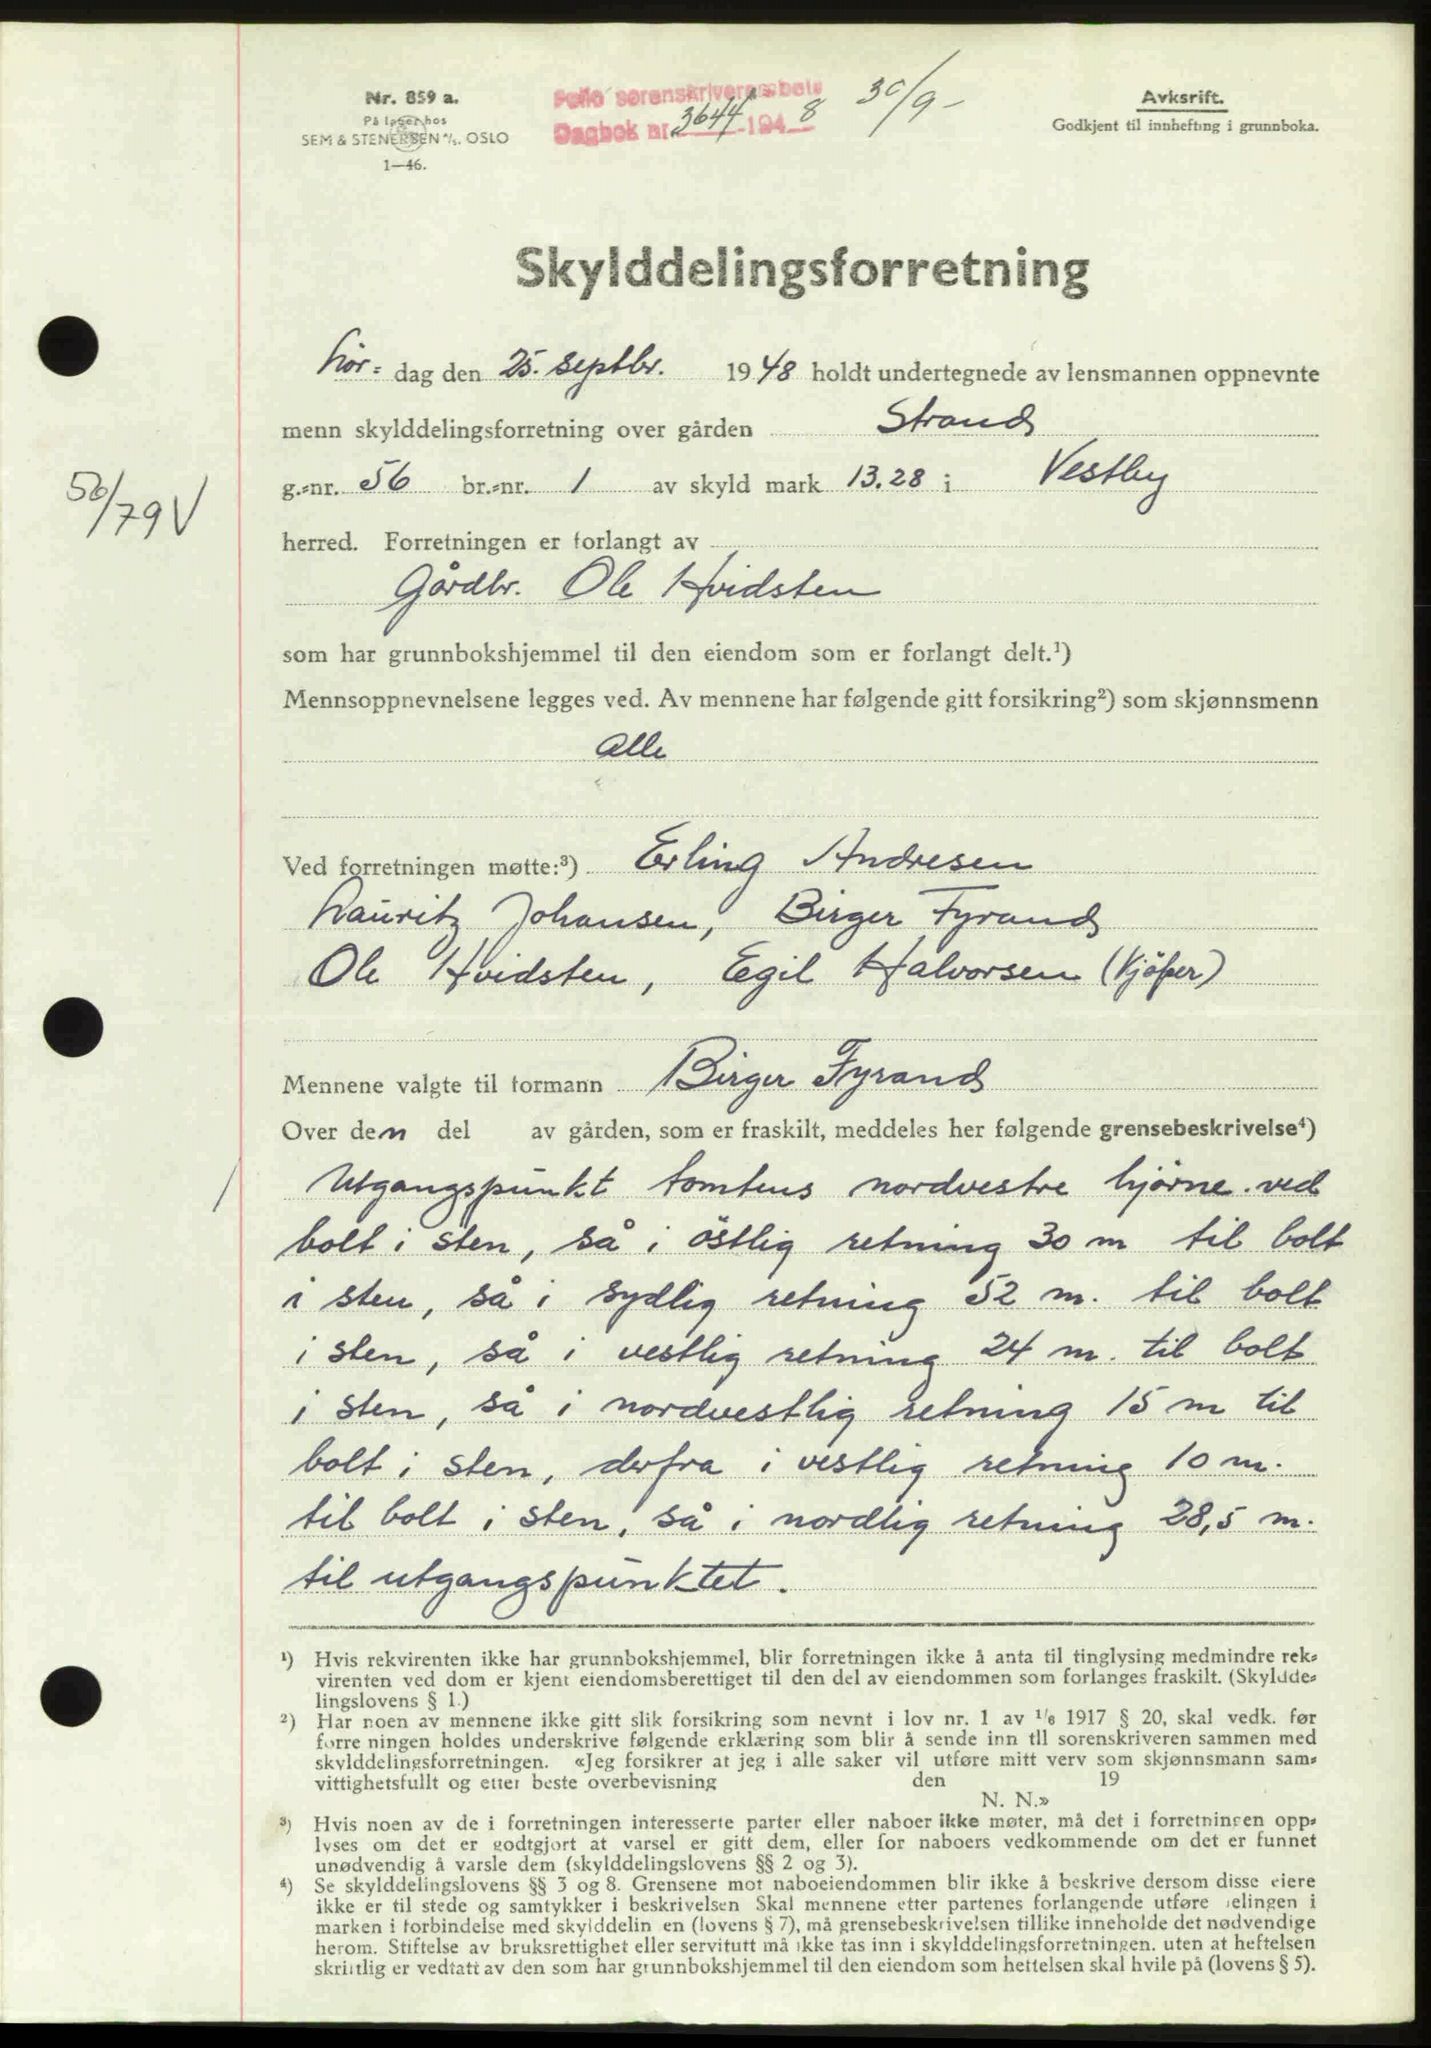 Nr. 859 a.
På lager hos
SEM & STENERSEN A/S. OSLO
1—46.
Follo sorenskriverembete
Dagbok nr. 3644 - 1948
30/9 -
Avksrift.
Godkjent til innhefting i grunnboka.
Skylddelingsforretning
Lör= dag den 25. septbr. 1948 holdt undertegnede av lensmannen oppnevnte
menn skylddelingsforretning over gården Strand
g.=nr. 56 br.=nr. 1 av skyld mark 13.28 i Vestby
56/79 V
herred. Forretningen er forlangt av
Gårdbr. Ole Hvidsten
som har grunnbokshjemmel til den eiendom som er forlangt delt.¹)
Mennsoppnevnelsene legges ved. Av mennene har følgende gitt forsikring²) som skjønnsmenn
Alle
Ved forretningen møtte:³) Erling Andresen
Lauritz Johansen, Birger Fyrand
Ole Hvidsten, Egil Halvorsen (kjöper)
Mennene valgte til formann Birger Fyrand
Over den del av gården, som er fraskilt, meddeles her følgende grensebeskrivelse⁴)
Utgangspunkt tomtens nordvestre hjörne ved
bolt i sten, så i östlig retning 30 m til bolt
i sten, så i sydlig retning 52 m. til bolt
i sten, så i vestlig retning 24 m. til bolt
i sten, så i nordvestlig retning 15 m til
bolt i sten, derfra i vestlig retning 10 m.
til bolt i sten, så i nordlig retning 28,5 m.
til utgangspunktet.
¹) Hvis rekvirenten ikke har grunnbokshjemmel, blir forretningen ikke å anta til tinglysing medmindre rek=
virenten ved dom er kjent eiendomsberettiget til den del av eiendommen som forlanges fraskilt. (Skyldde=
lingslovens § 1.)
²) Har noen av mennene ikke gitt slik forsikring som nevnt i lov nr. 1 av 1/6 1917 § 20, skal vedk. før
forre ningen holdes underskrive følgende erklæring som blir å sende inn til sorenskriveren sammen med
skylddelingsforretningen. «Jeg forsikrer at jeg i alle saker vil utføre mitt verv som skjønnsmann sam=
vittighetsfullt og etter beste overbevisning den 19
N. N.»
³) Hvis noen av de i forretningen interesserte parter eller naboer ikke møter, må det i forretningen opp=
lyses om det er godtgjort at varsel er gitt dem, eller for naboers vedkommende om det er funnet
unødvendig å varsle dem (skylddelingslovens §§ 2 og 3).
⁴) Se skylddelingslovens §§ 3 og 8. Grensene mot naboeiendommen blir ikke å beskrive dersom disse eiere
ikke er til stede og samtykker i beskrivelsen Skal mennene etter partenes forlangende utføre delingen i
marken i forbindelse med skylddelin en (lovens § 7), må grensebeskrivelsen tillike inneholde det nødvendige
herom. Stiftelse av bruksrettighet eller servitutt må ikke tas inn i skylddelingsforretningen. uten at heftelsen
skriftlig er vedtatt av den som har grunnbokshjemmel til den eiendom som heftelsen skal hvile på (lovens § 5).